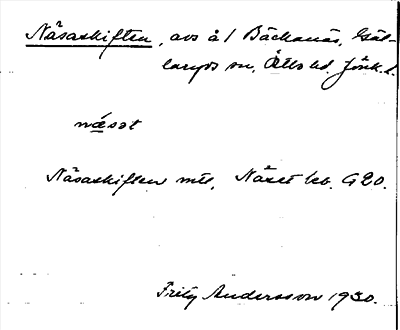 Näsaskiften, avs å/ Bäckanäs, Gäl-
laryds sn, Östbo hd. Jönk. l.
næsət
Näsaskiften mtl, Näset kb. G20.
Fritz Andersson 1930.